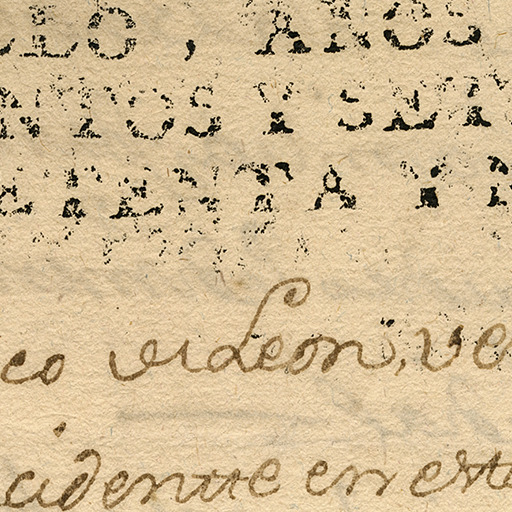 LLO, AÑOS
NTOS Y SETE
ETENTA Y N
co de Leon, ve
cidente en este